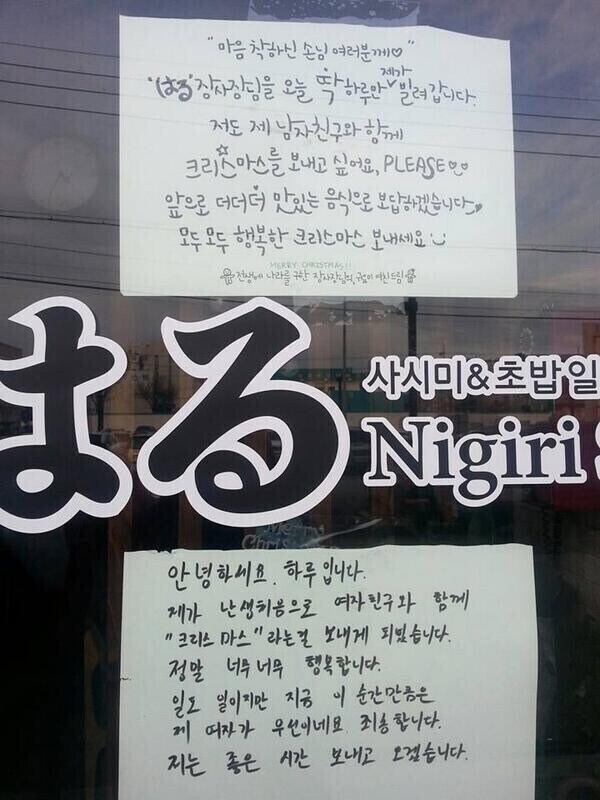 "마음 착하신 손님 여러분께♡"
'はる'장사장님을 오늘 딱 하루만 제가 빌려갑니다.
저도 제 남자친구와 함께
크리스마스를 보내고 싶어요, PLEASE
앞으로 더더더 맛있는 음식으로 보답하겠습니다
모두 모두 행복한 크리스마스 보내세요
MERRY CHRISTMAS!!
전생에 나라를 구한 장사장님의, 여친드림
はる
사시미&초밥 일
Nigiri
Merry
Chris
안녕하세요. 하루입니다.
제가 난생처음으로 여자친구와 함께
"크리스마스"라는걸 보내게 되었습니다.
정말 너무너무 행복합니다.
일도 일이지만 지금 이 순간만큼은
제 여자가 우선이네요. 죄송합니다.
저는 좋은 시간 보내고 오겠습니다.